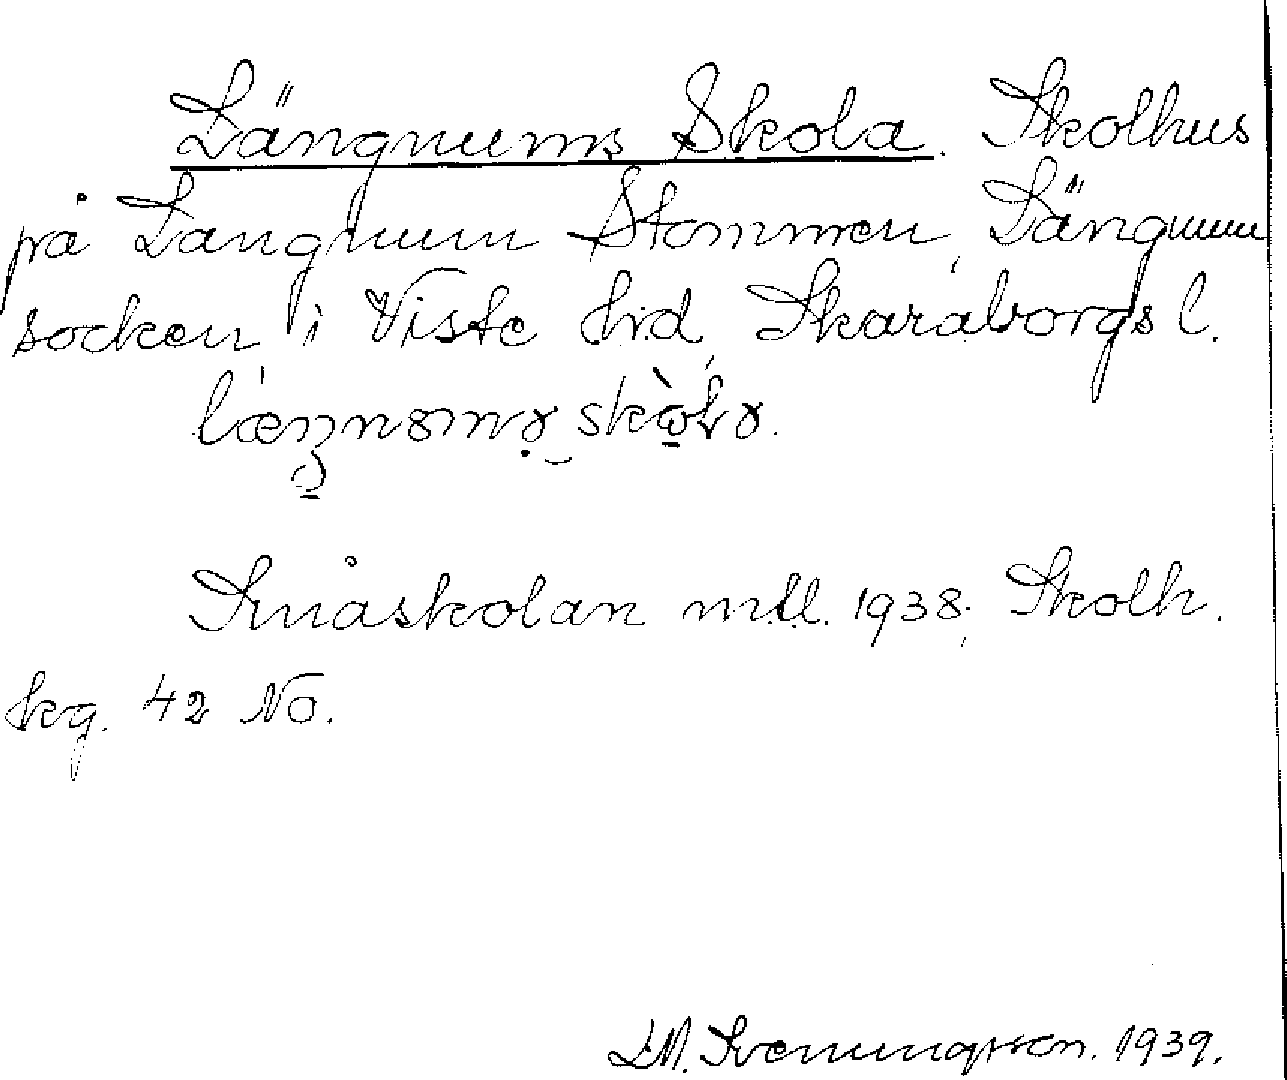 Längnums Skola. Skolhus
på Längnum Stommen, Längnum
socken i Viste hd, Skaraborgs l.
Småskolan m.ll. 1938; Skolh.
kg. 42 No.
D.M. Sveningsson. 1939.